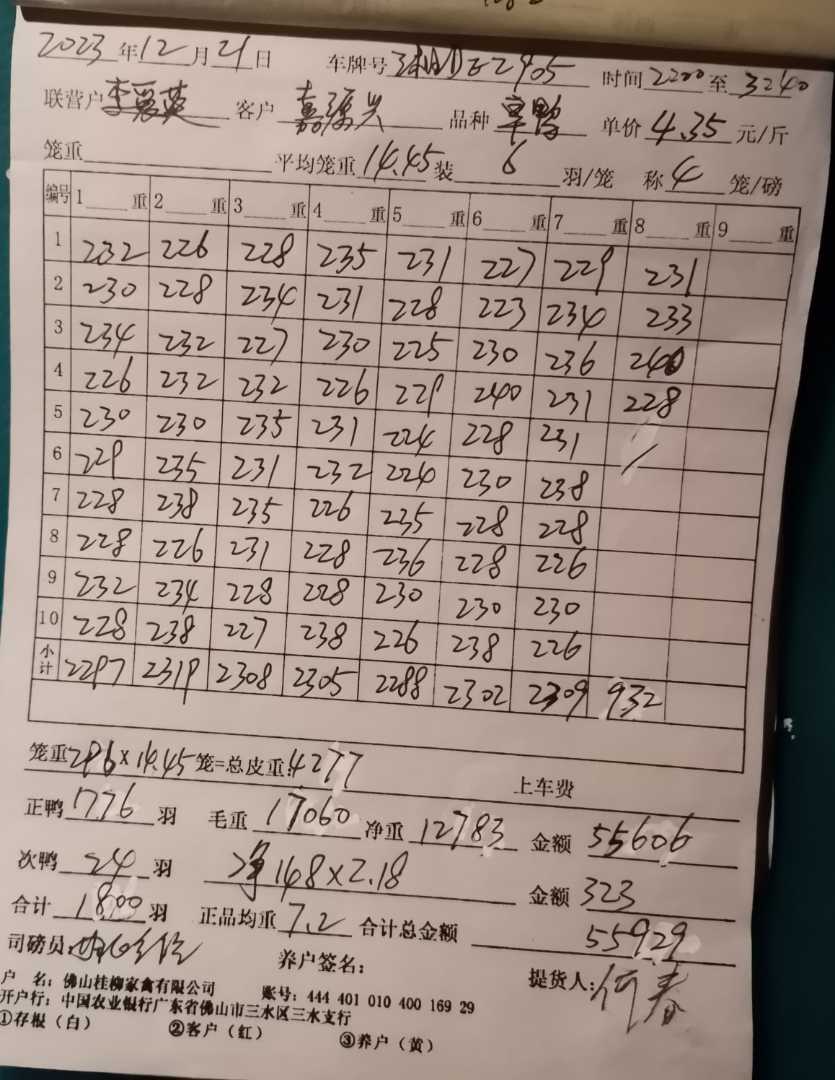 2023年12月21日 车牌号 DZ2905 时间2200至3240
联营户李爱英 客户 嘉振兴 品种 草鸭 单价 4.35元/斤
笼重 平均笼重14.45装 6 羽/笼 称4笼/磅
编号 1 重 2 重 3 重 4 重 5 重 6 重 7 重 8 重 9 重
1 232 226 228 235 231 227 229 231
2 230 228 234 231 228 223 234 233
3 234 232 227 230 225 230 236 240
4 226 232 232 226 229 240 231 228
5 230 230 235 231 224 228 231 /
6 229 235 231 232 224 230 238
7 228 238 235 226 235 228 228
8 228 226 231 228 236 228 226
9 232 234 228 228 230 230 230
10 228 238 227 238 226 238 226
小计 2297 2319 2308 2305 2288 2302 2309 932
笼重296×14.45笼=总皮重:4277 上车费
正鸭1776羽 毛重17060净重12783 金额55606
次鸭24羽 净148×2.18 金额323
合计1800羽 正品均重7.2合计总金额 55929
司磅员: 养户签名: 提货人:何春
户 名:佛山桂柳家禽有限公司 账号:444 401 010 400 169 29
开户行:中国农业银行广东省佛山市三水区三水支行
①存根(白) ②客户(红) ③养户(黄)